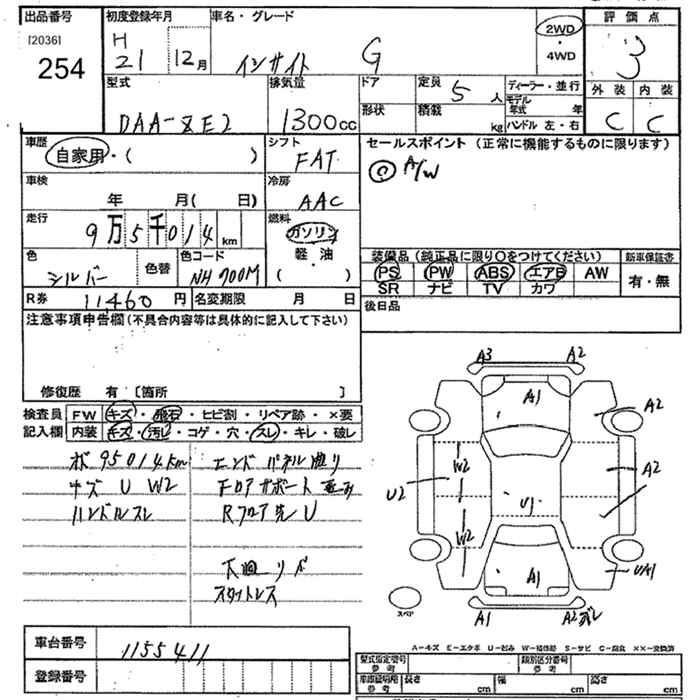 出品番号 初度登録年月 車名・グレード 2WD ・ 4WD 評価点
[2036] H 21 12月 インサイト G 3
254
型式 排気量 ドア 定員 5 人 ディーラー・並行 外装 内装
DAA-ZE2 1300cc 形状 積載 kg モデル年式 年 C C
ハンドル 左・右
車歴 自家用・( ) シフト FAT セールスポイント (正常に機能するものに限ります)
◎ A/W
車検 年 月( 日) 冷房 AAC
走行 9万5千014km 燃料 ガソリン 軽・油 ( )
色 シルバー 色替 色コード NH700M
装備品 (純正品に限り〇をつけてください) 新車保証書
PS PW ABS エアB AW 有・無
SR ナビ TV カワ
R券 11,460円 名変期限 月 日 後日品
注意事項申告欄 (不具合内容等は具体的に記入して下さい)
修復歴 有 [箇所 ]
検査員 FW キズ・飛石・ヒビ割・リペア跡・×要
記入欄 内装 キズ・汚レ・コゲ・穴・スレ・キレ・破レ
メ 95014km エンドパネル
キズ U W2 Fロアサポート
ハンドルスレ Rフロア先 U
下廻リ サビ
スタットレス
A3 A2
A1
A2
W2 A2
U2 U1
W2
A1 UA1
スペア
A1 A2 ズレ
A-キズ E-エクボ U-凹み W-補修跡 S-サビ C-腐食 ××-交換済
車台番号 1155411
登録番号
型式指定番号 参考 類別区分番号 参考
車庫証明用 参考 長さ cm 幅 cm 高さ cm